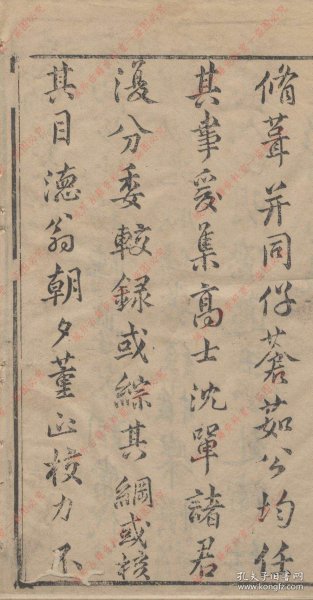 脩葺并同仔蒼茹公均任
其事爰集高士沈單諸君
復分委較録或綜其綱或核
其目德翁朝夕董正校力不
孔夫子旧书网